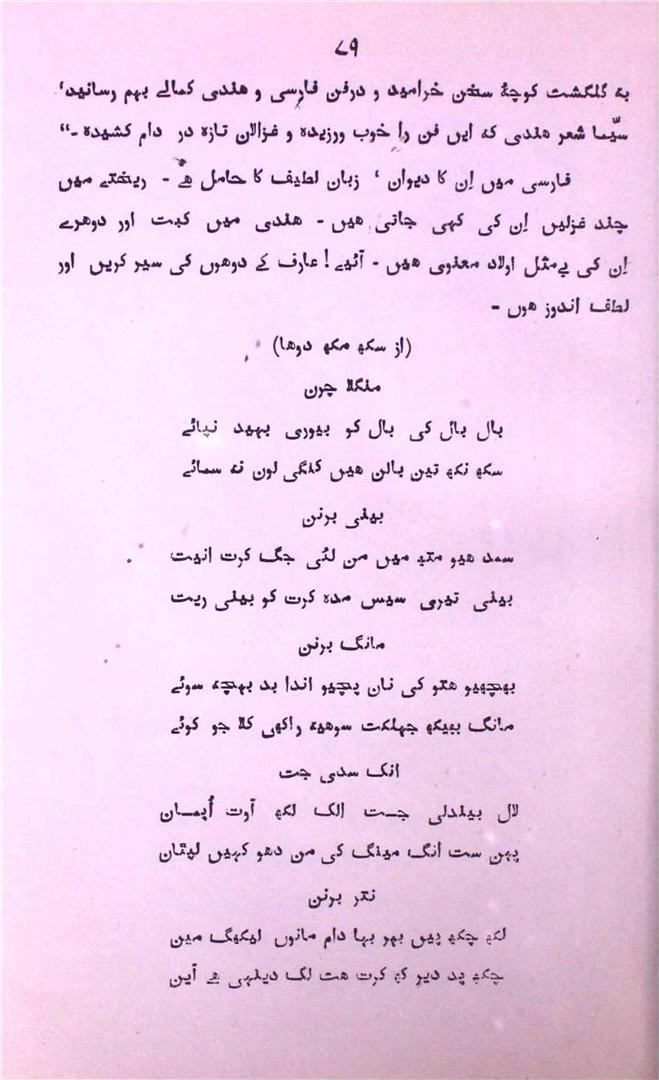 ۷۹
بہ گلگشت کوچۂ سخن خرامید و درفن فارسی و ھندی کمالے بہم رسانید'
سیّما شعر ھندی کہ ایں فن را خوب ورزیدہ و غزالان تازہ در دام کشیدہ ۔"
فارسی میں اِن کا دیوان ' زبان لطیف کا حامل ھے ۔ ریختے میں
چند غزلیں اِن کی کہی جاتی ھیں ۔ ھندی میں کبت اور دوھرے
اِن کی بےمثل اولاد معنوی ھیں ۔ آئیے! عارف کے دوھوں کی سیر کریں اور
لطف اندوز ھوں ۔
(از سکھ مکھ دوھا)
منگلا چرن
بال بال کی بال کو بیوری بھید نپائے
سکھ نکھ تین بالن ھیں کنگی لون نہ سمائے
بینی برنن
سمد ھیو متھ میں من لئی جگ کرت انیت
بینی تیری سیس مدہ کرت کو بینی ریت
مانگ برنن
بھچھیو ھتو کی نان پچیو اندا بد بھچہ سوئے
مانگ بیکھ جھلکت سوھیہ راکھی کلا جو کوئے
انک سدی جت
لال بیندلی جست الک لکھ آوت اُپمان
پھن ست انگ مینگ کی من دھو کہیں لپتان
نتر برنن
لکھ چکھ پیں بھر بہا دام مانوں لیکھگ مین
چکھ پد دیر کہ کرت ھت لگ دینہی ھے آین